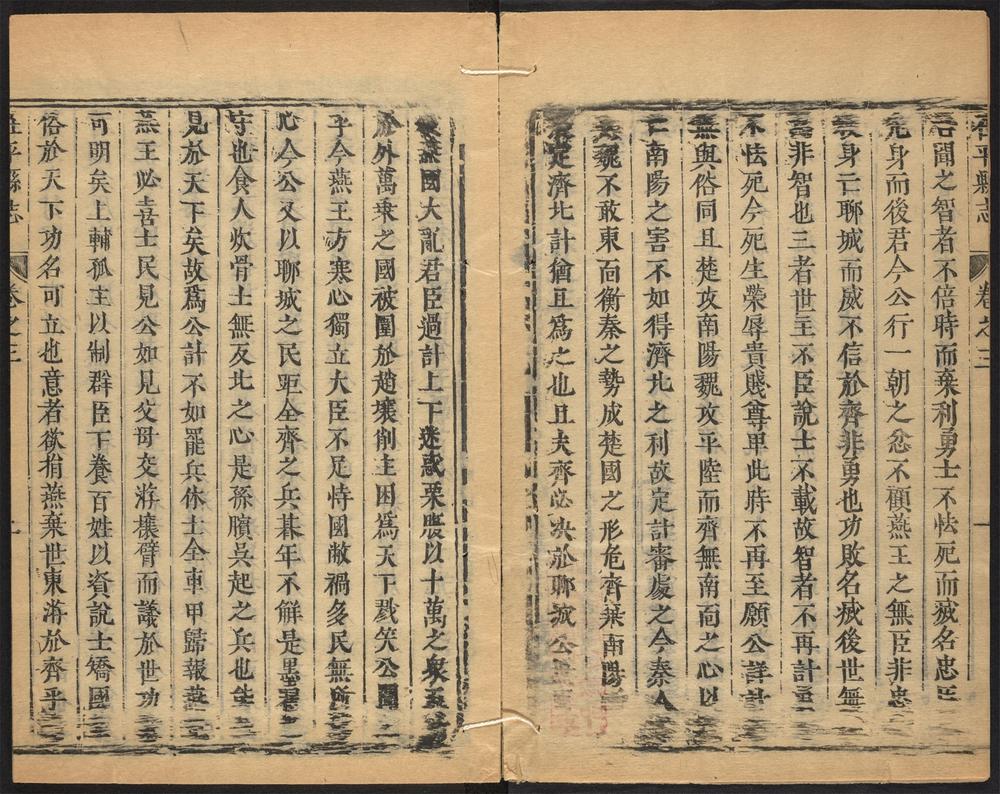 茌平縣志 卷之三 一
吾聞之智者不倍時而棄利勇士不怯死而滅名忠臣
先身而後君今公行一朝之忿不顧燕王之無臣非忠
殺身亡聊城而威不信於齊非勇也功敗名滅後世無
爲非智也三者世主不臣說士不載故智者不再計勇
不怯死今死生榮辱貴賤尊卑此時不再至願公詳計
無與俗同且楚攻南陽魏攻平陸而齊無南面之心以
亡南陽之害不如得濟北之利故定計審處之今秦人
魏不敢東面衡秦之勢成楚國之形危齊棄南陽
定濟北計猶且爲之也且夫齊必决於聊城公
燕國大亂君臣過計上下迷惑栗腹以十萬之衆五
於外萬乘之國被圍於趙壤削主困爲天下戮笑公聞
乎今燕王方寒心獨立大臣不足恃國敝禍多民無所
心今公又以聊城之民距全齊之兵朞年不解是墨翟
守也食人炊骨士無反北之心是孫臏吳起之兵也能
見於天下矣故爲公計不如罷兵休士全車甲歸報燕
燕王必喜士民見公如見父母交游攘臂而議於世功
可明矣上輔孤主以制群臣下養百姓以資說士矯國
俗於天下功名可立也意者欲捐燕棄世東游於齊乎
茌平縣志 卷之三